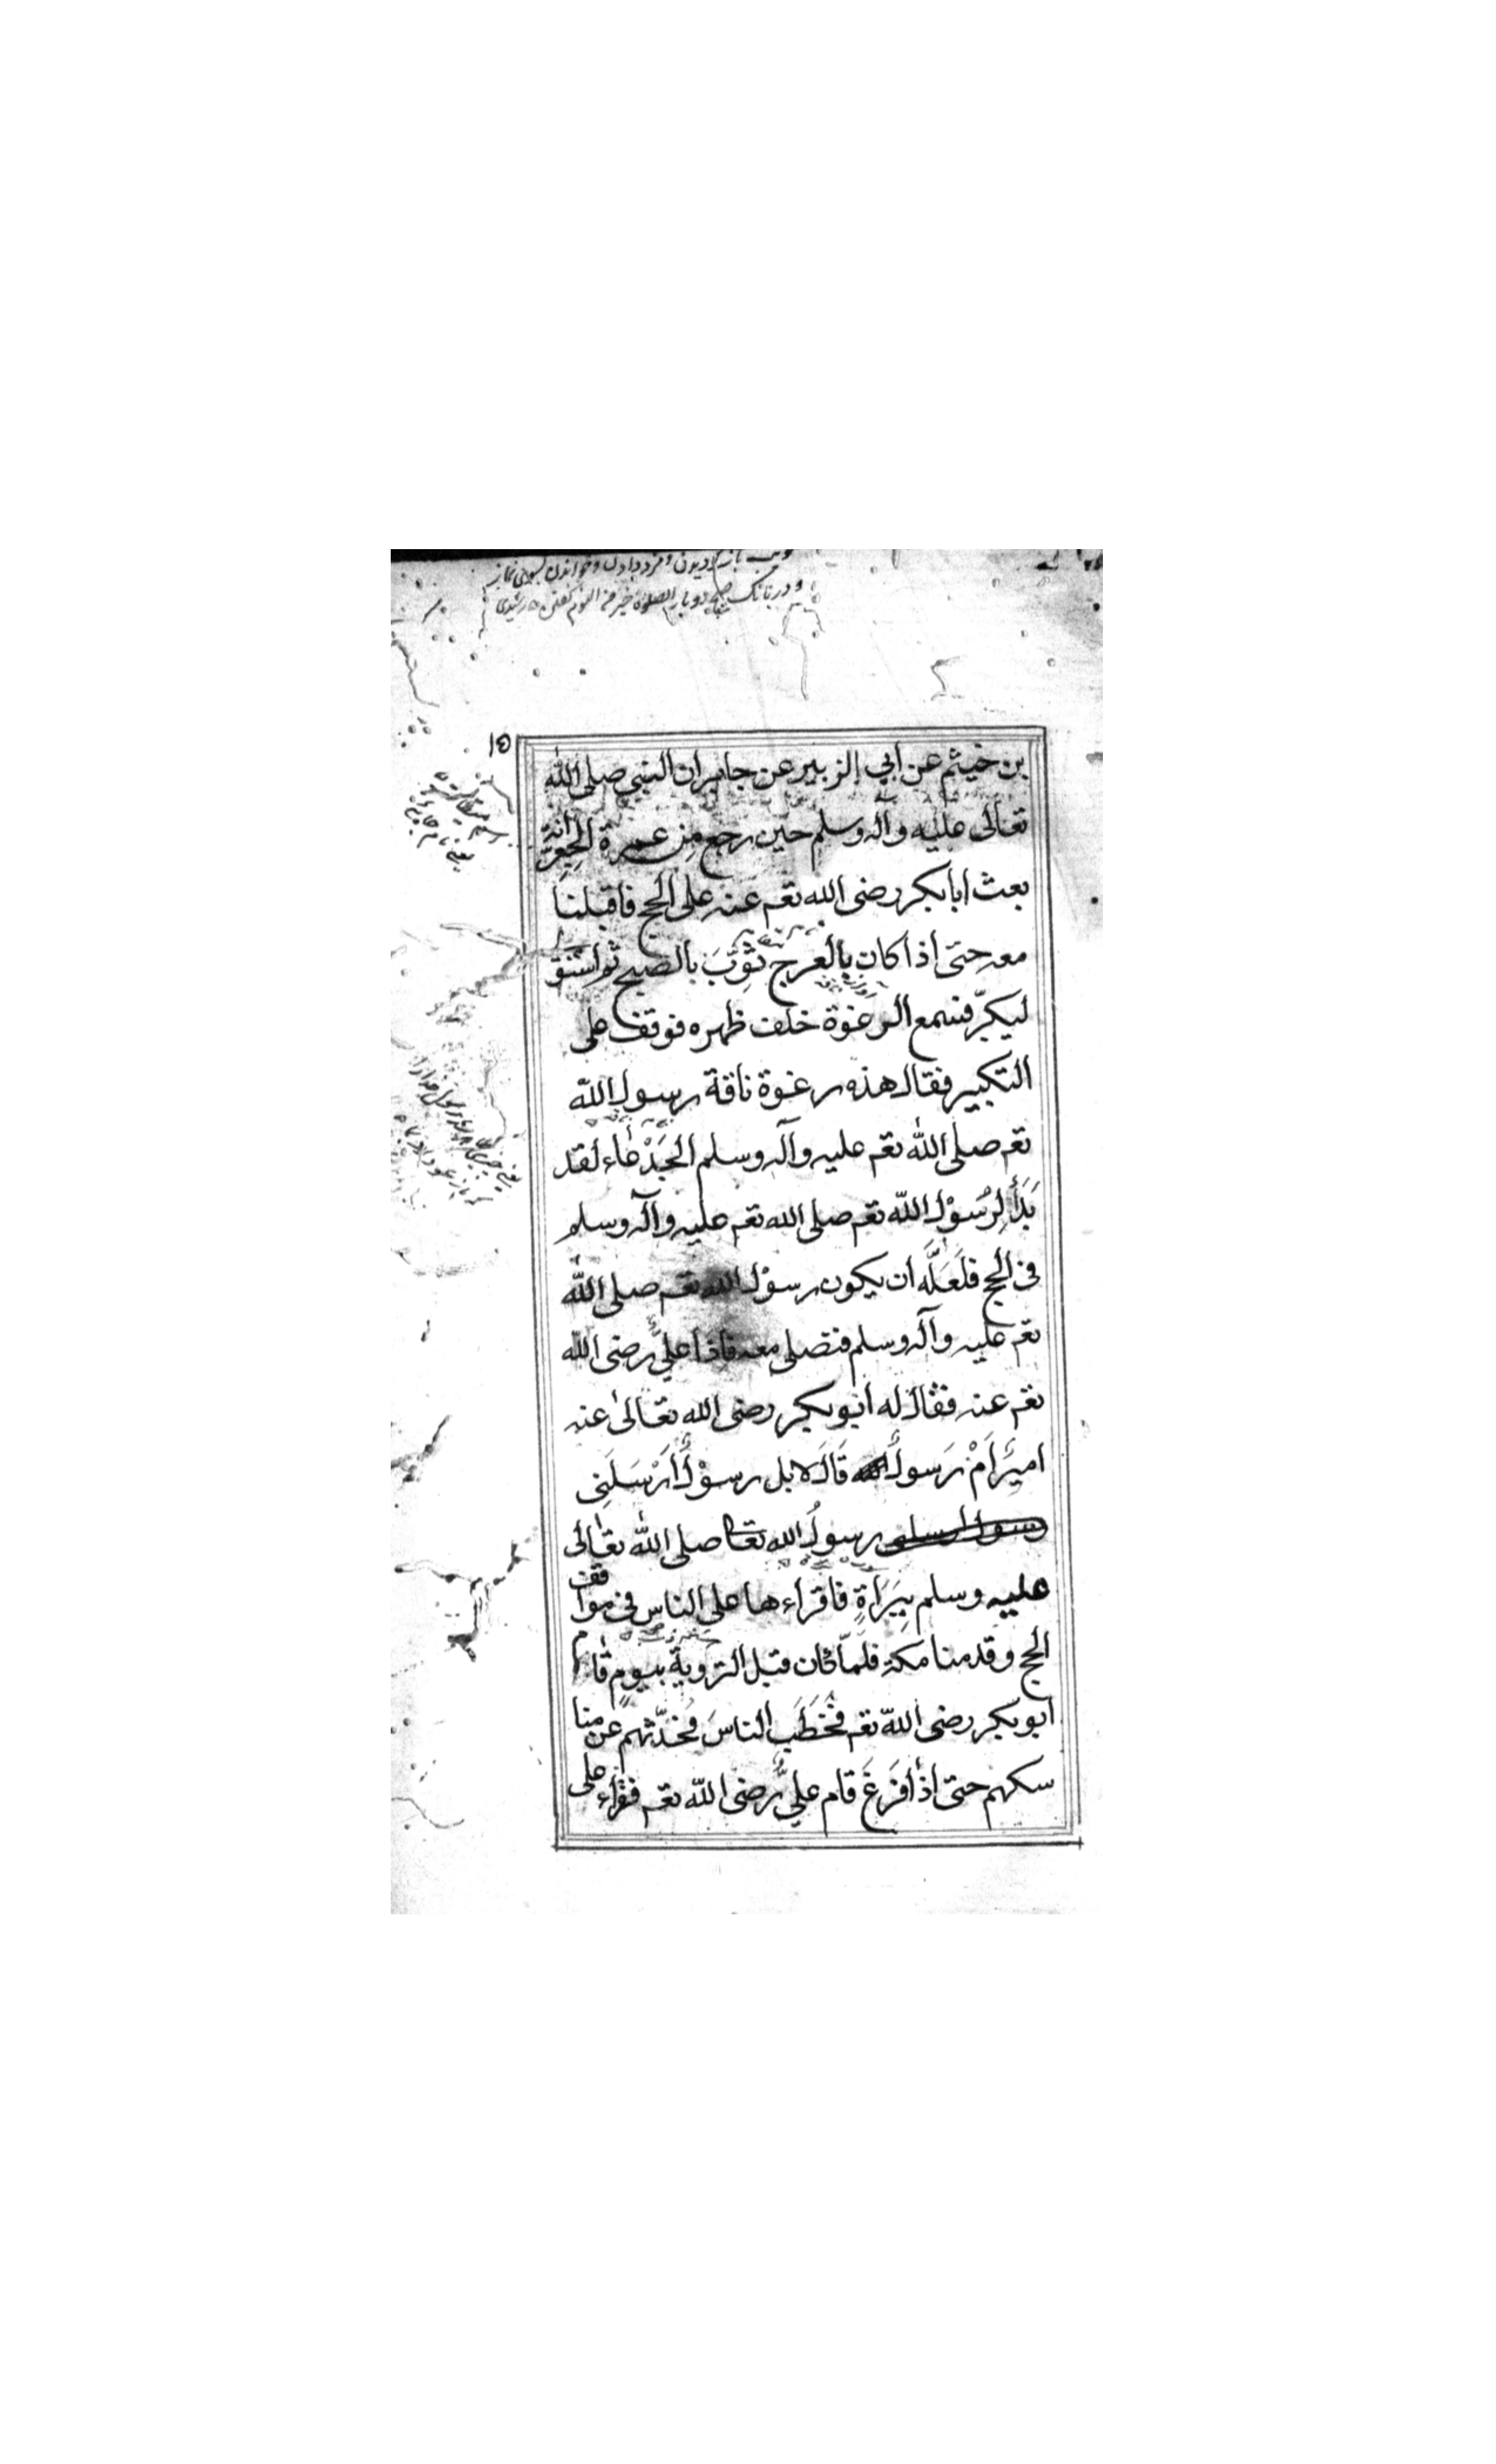 ودر بانگ صبح دوبار الصلوة خير من النوم گفتن رشيدى
١٥
بن خيثم عن ابي الزبير عن جابر ان النبي صلى الله
تعالى عليه وآله وسلم حين رجع من عمرة الجعرانة
بعث ابا بكر رضى الله تعم عنه على الحج فاقبلنا
معه حتى اذا كان بالعرج ثوّب بالصبح ثم استوى
ليكبّر فسمع الرغوة خلف ظهره فوقف على
التكبير فقال هذه رغوة ناقة رسول الله
تعم صلى الله تعم عليه وآله وسلم الجدعاء لقد
بدأ لرسول الله تعم صلى الله تعم عليه وآله وسلم
فى الحج فلعلّه ان يكون رسول الله تعم صلى الله
تعم عليه وآله وسلم فنصلى معه فاذا علىّ رضى الله
تعم عنه فقال له ابو بكر رضى الله تعالى عنه
امير ام رسول قال لا بل رسول ارسلنى
رسول الله تعا صلى الله تعالى
عليه وسلم ببراة فاقراءها على الناس فى مواقف
الحج وقدمنا مكة فلمّا كان قبل التروية بيوم قام
ابو بكر رضى الله تعم فخطب الناس فحدّثهم عن منا
سكهم حتى اذا فرغ قام علىّ رضى الله تعم فقراء على